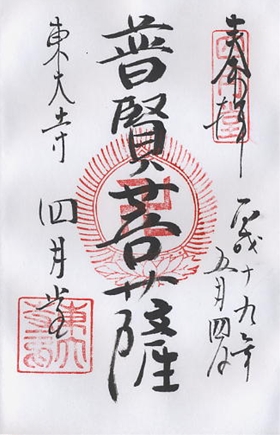 奉拝
平成十九年
五月四日
普賢菩薩
四月堂
東大寺